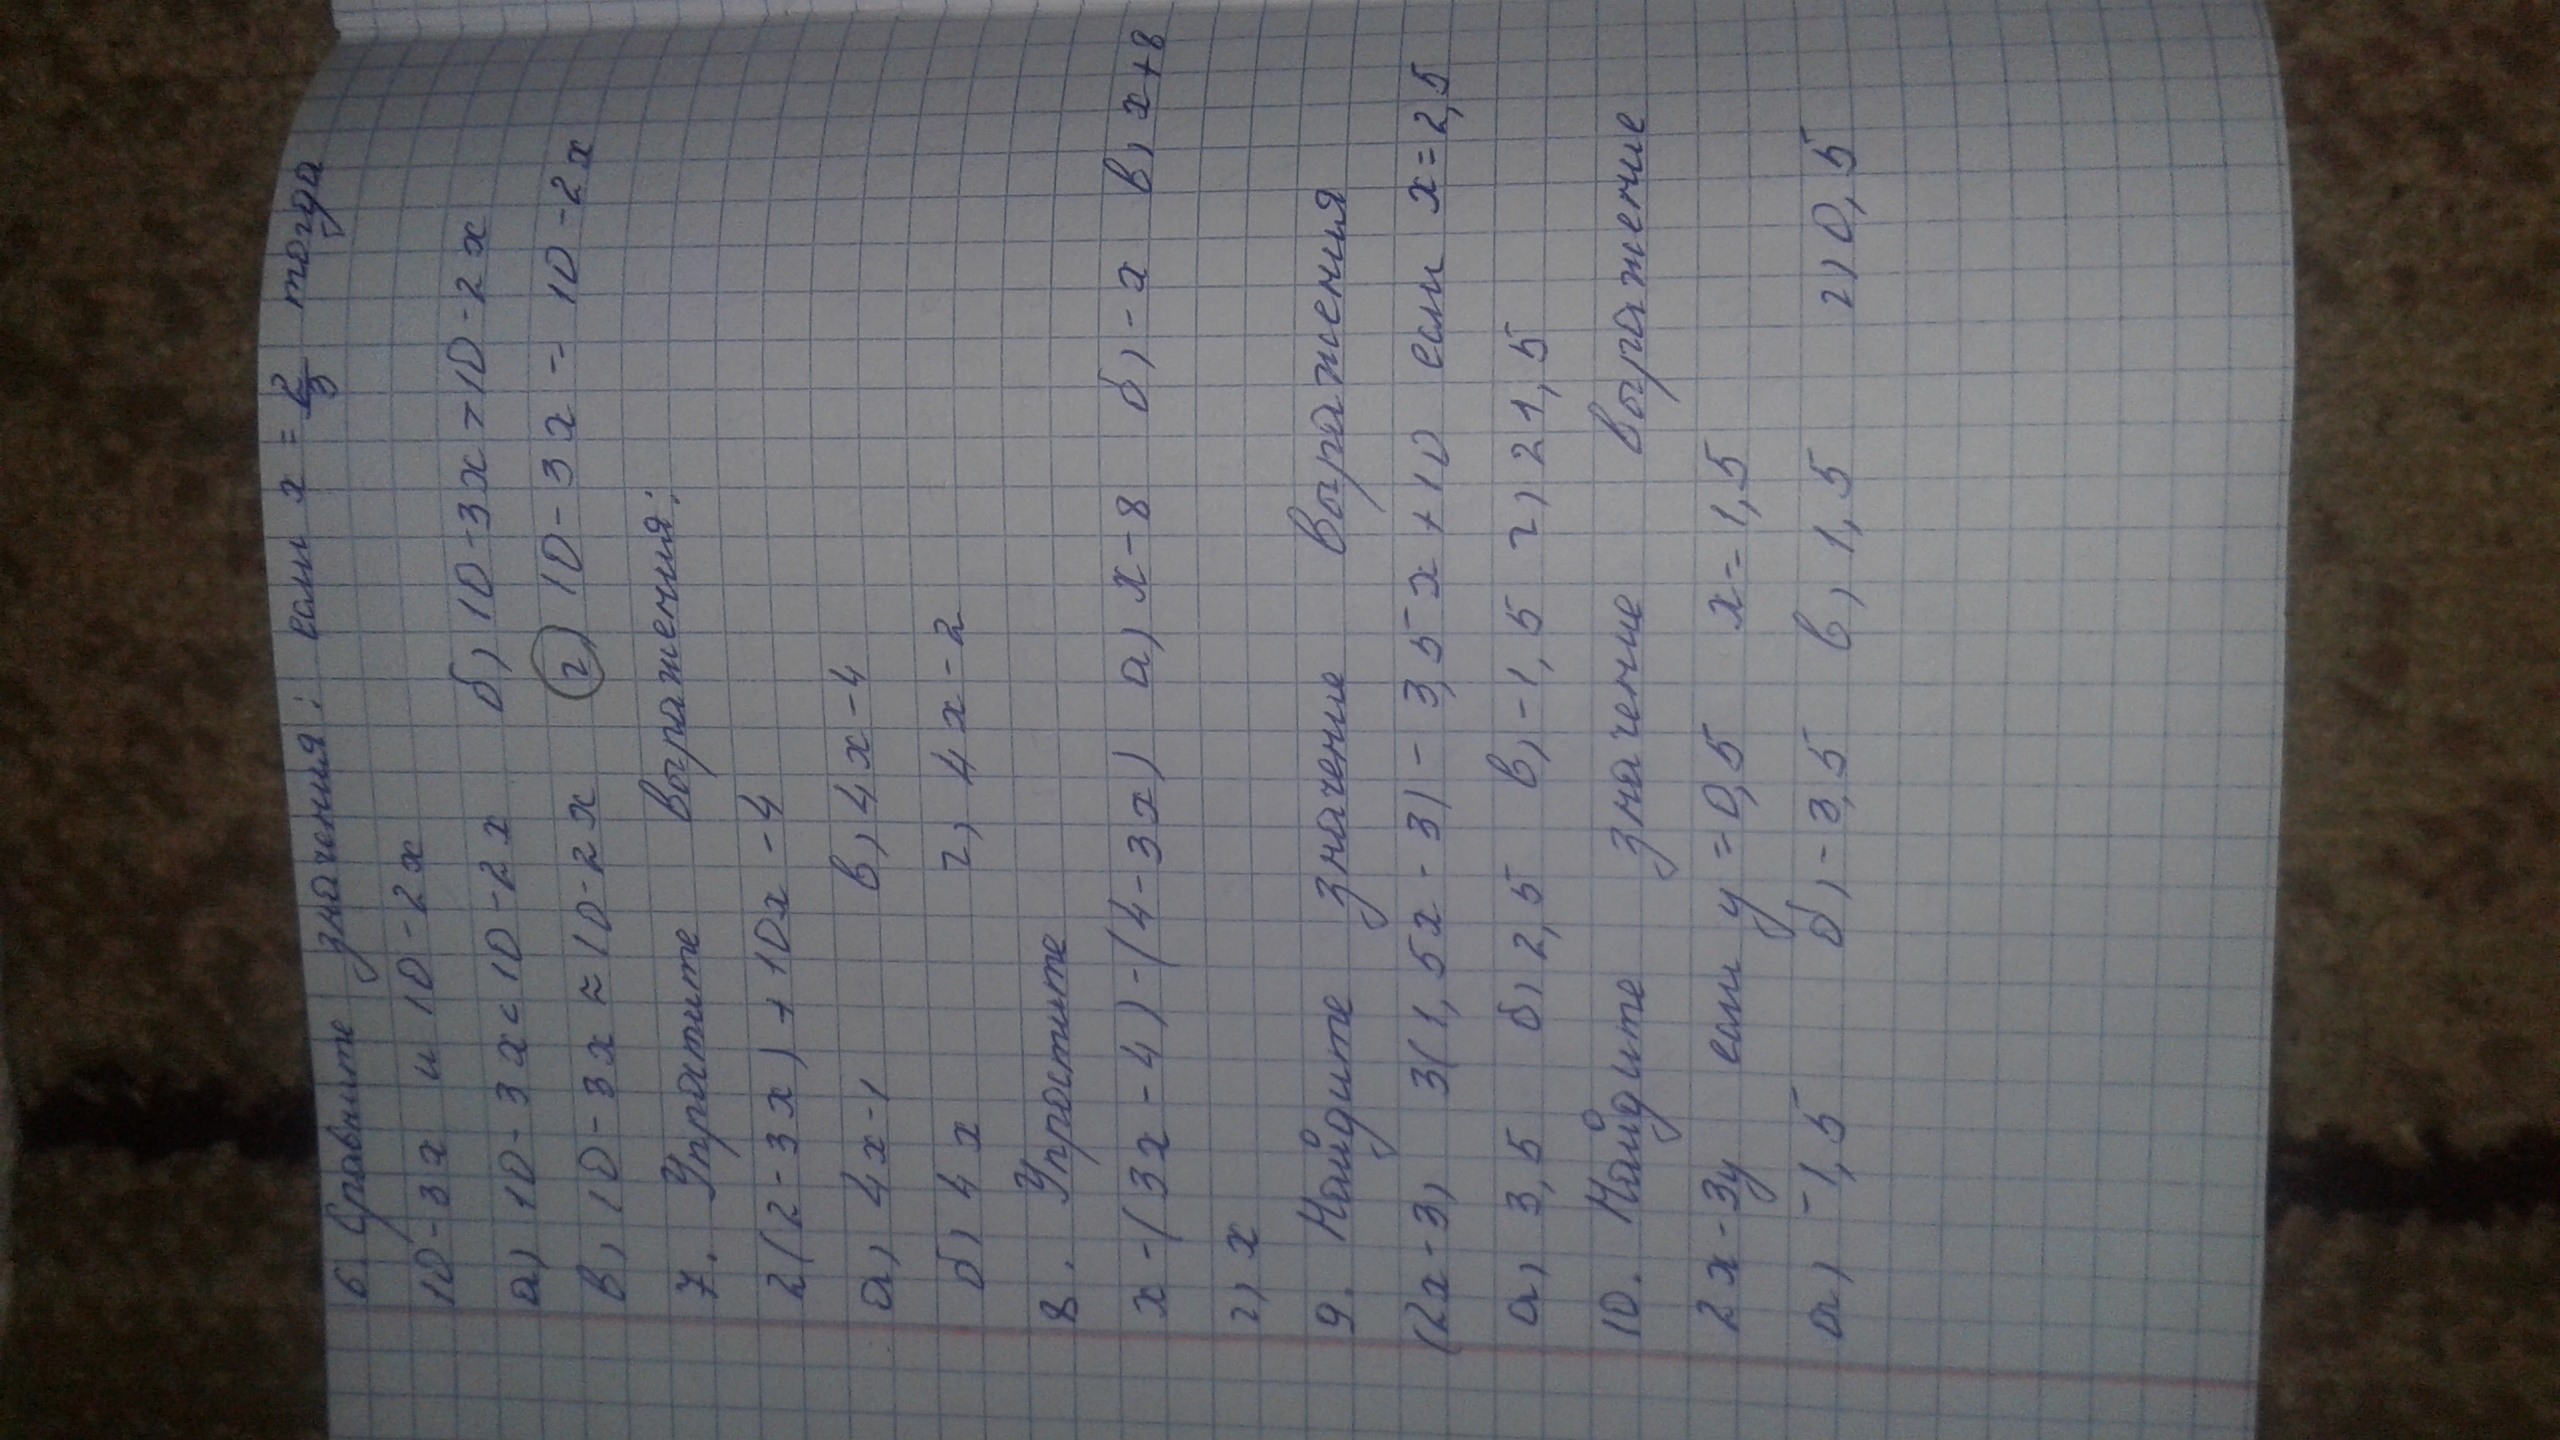 6. Сравните значения: если x = 2/3 тогда
10-3x и 10-2x
а) 10-3x<10-2x б) 10-3x>10-2x
в) 10-3x≈10-2x г) 10-3x = 10-2x
7. Упростите выражения:
2(2-3x)+10x-4
а) 4x-1 в) 4x-4
б) 4x г) 4x-2
8. Упростите
x-(3x-4)-(4-3x) а) x-8 б) -x в) x+8
г) x
9. Найдите значение выражения
(2x-3) 3(1,5x-3)-3,5x+10 если x=2,5
а) 3,5 б) 2,5 в) -1,5 г) 21,5
10. Найдите значение выражение
2x-3y если y=0,5 x=1,5
а) -1,5 б) -3,5 в) 1,5 г) 0,5